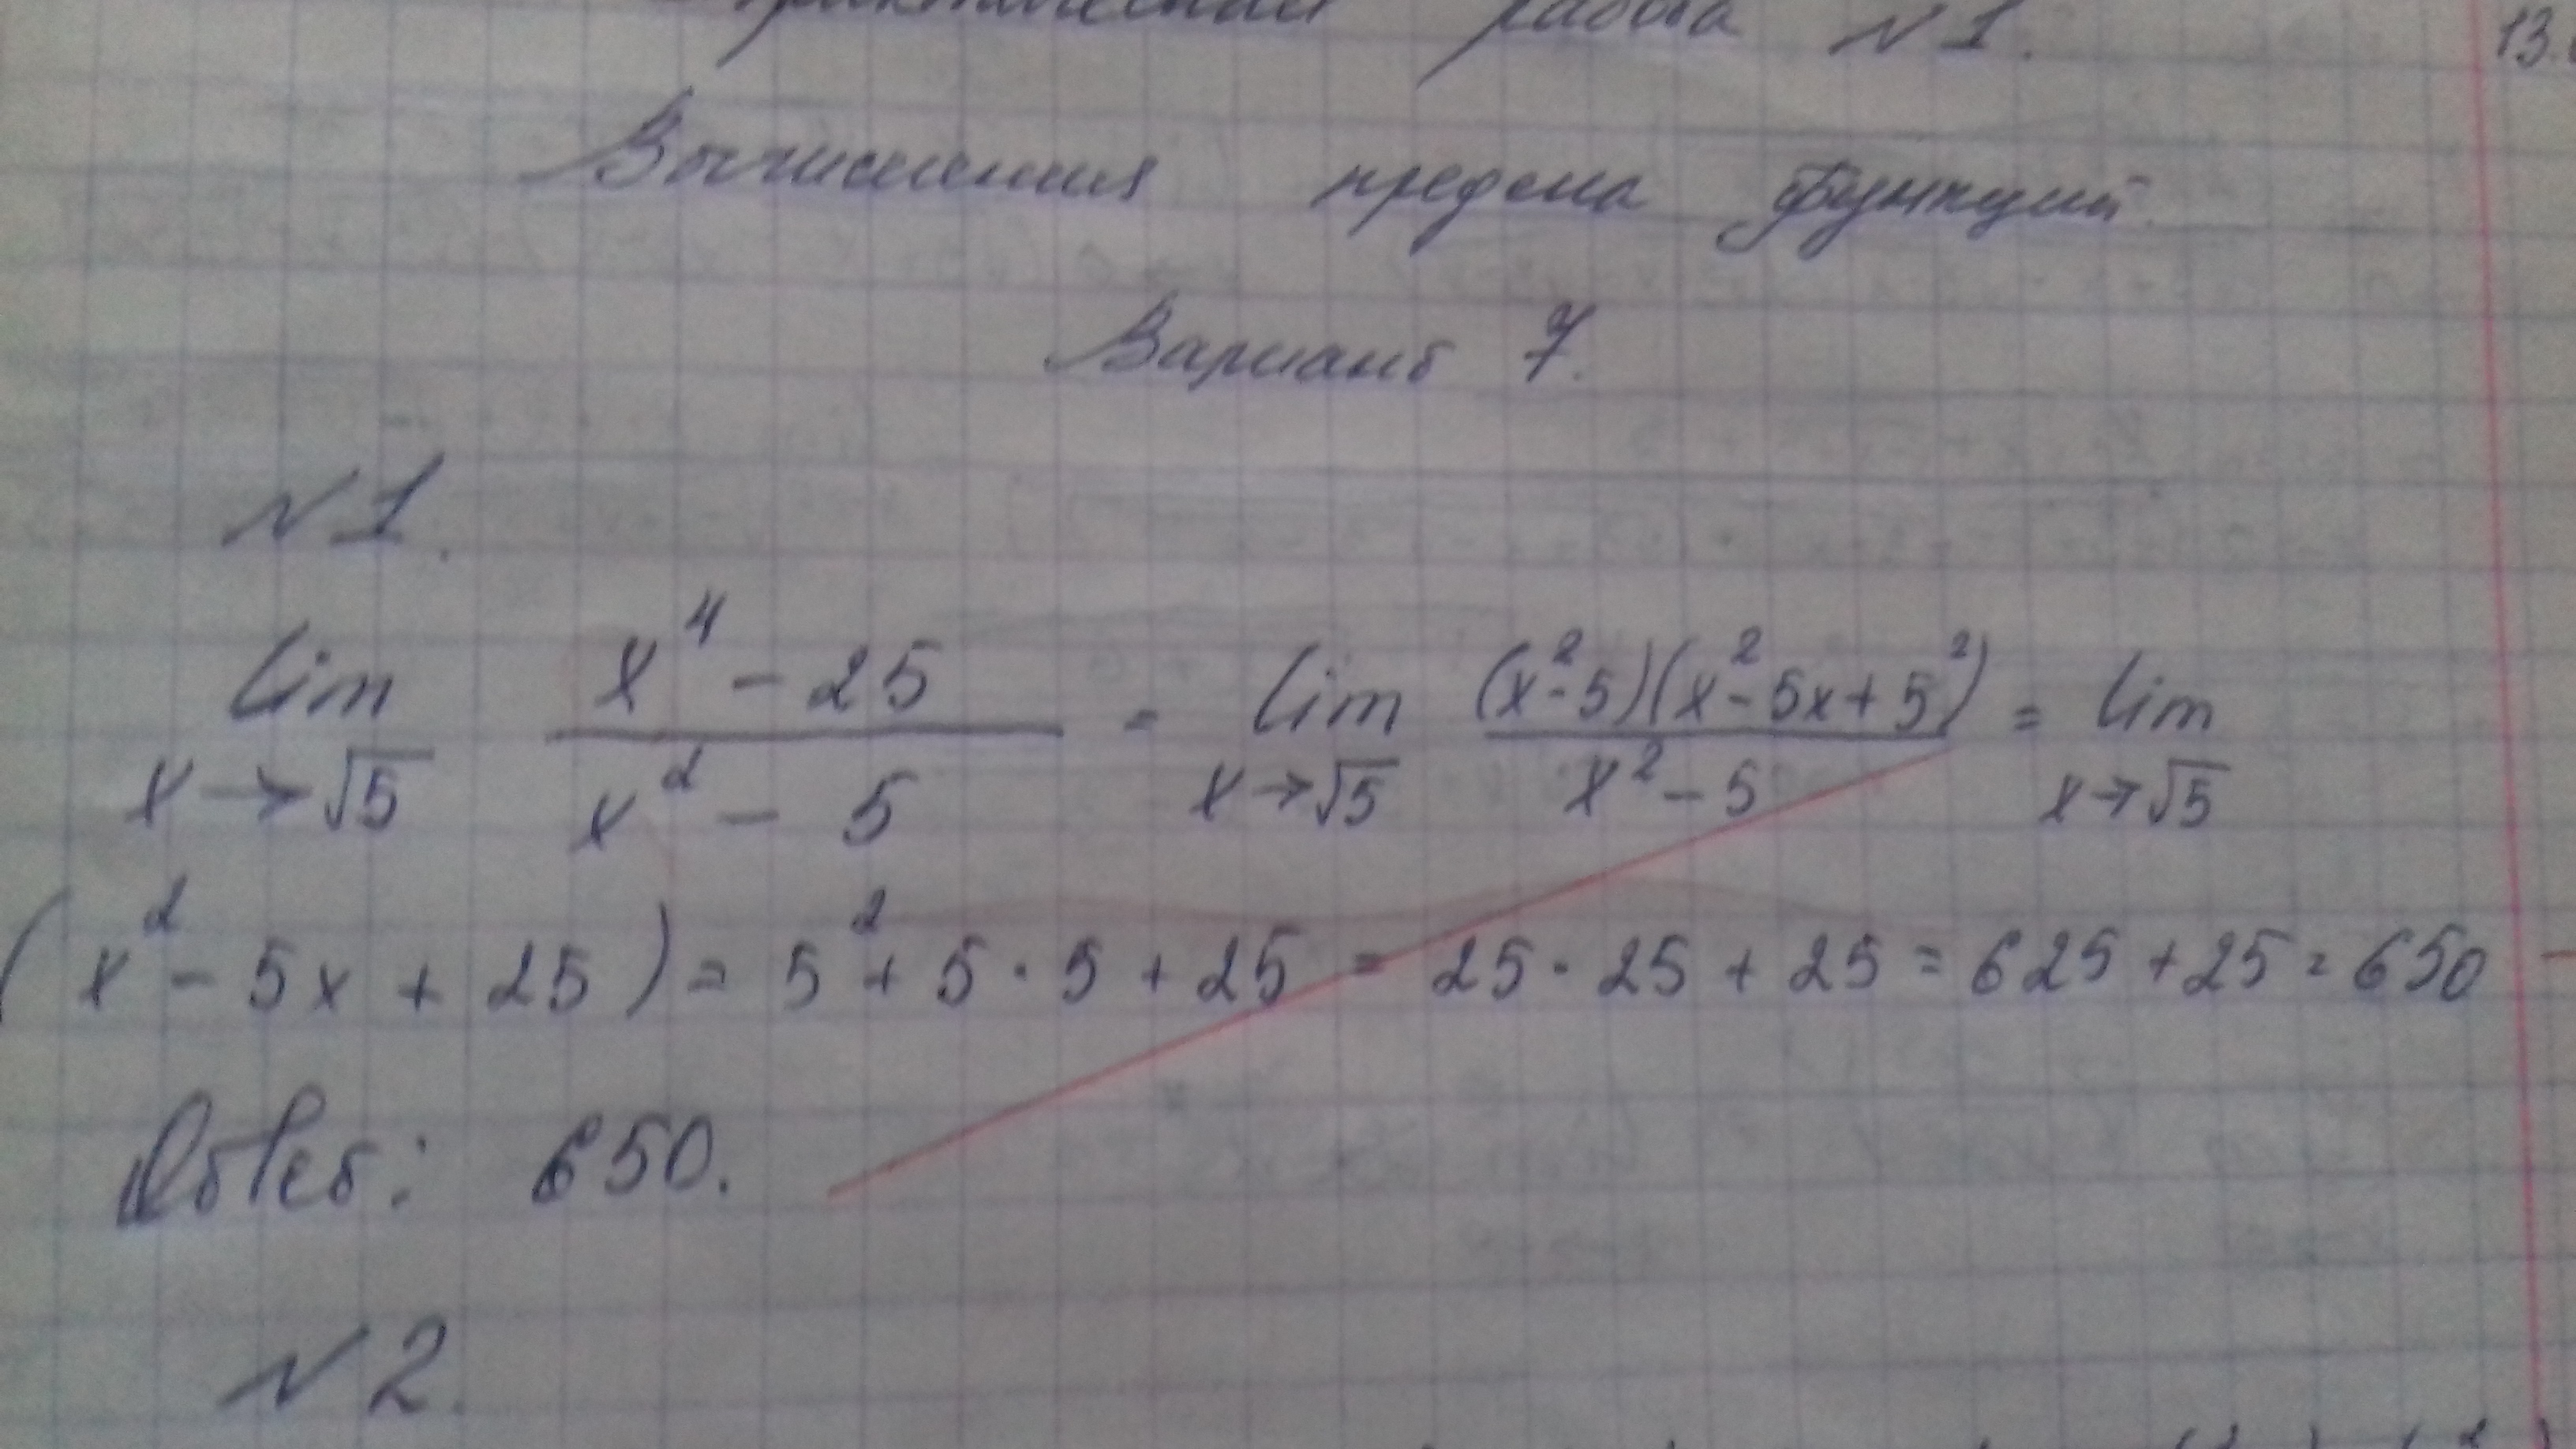 Практическая работа №1. 13.
Вычисления предела функций.
Вариант 7.
№1.
lim x→√5 (x⁴ - 25)/(x² - 5) = lim x→√5 ((x²-5)(x²-5x+5²))/(x² - 5) = lim x→√5
(x² - 5x + 25) = 5² + 5 · 5 + 25 = 25 · 25 + 25 = 625 + 25 = 650
Ответ: 650.
№2.